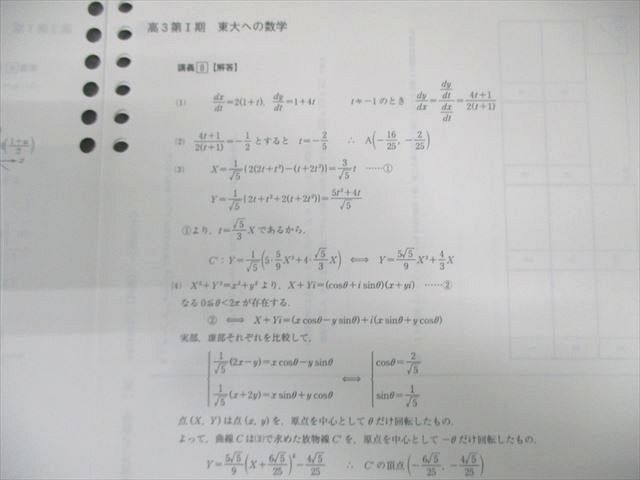 高3第Ⅰ期 東大への数学
講義 8 【解答】
(1) dx/dt=2(1+t), dy/dt=1+4t t≠-1のとき dy/dx=(dy/dt)/(dx/dt)=(4t+1)/(2(t+1))
(2) (4t+1)/(2(t+1))=-1/2 とすると t=-2/5 ∴ A(-16/25, -2/25)
(3) X=1/√5{2(2t+t²)-(t+2t²)}=3/√5 t ……①
Y=1/√5{2t+t²+2(t+2t²)}=(5t²+4t)/√5
①より, t=√5/3 X であるから,
C': Y=1/√5(5・5/9 X²+4・√5/3 X) ⟺ Y=5√5/9 X²+4/3 X
(4) X²+Y²=x²+y² より, X+Yi=(cosθ+i sinθ)(x+yi) ……②
なる 0≦θ<2π が存在する.
② ⟺ X+Yi=(x cosθ-y sinθ)+i(x sinθ+y cosθ)
実部, 虚部それぞれを比較して,
{1/√5(2x-y)=x cosθ-y sinθ ⟺ {cosθ=2/√5
1/√5(x+2y)=x sinθ+y cosθ sinθ=1/√5
点(X, Y)は点(x, y)を, 原点を中心としてθだけ回転したもの.
よって, 曲線Cは(3)で求めた放物線C'を, 原点を中心として-θだけ回転したもの.
Y=5√5/9(X+6√5/25)²-4√5/25 ∴ C'の頂点(-6√5/25, -4√5/25)